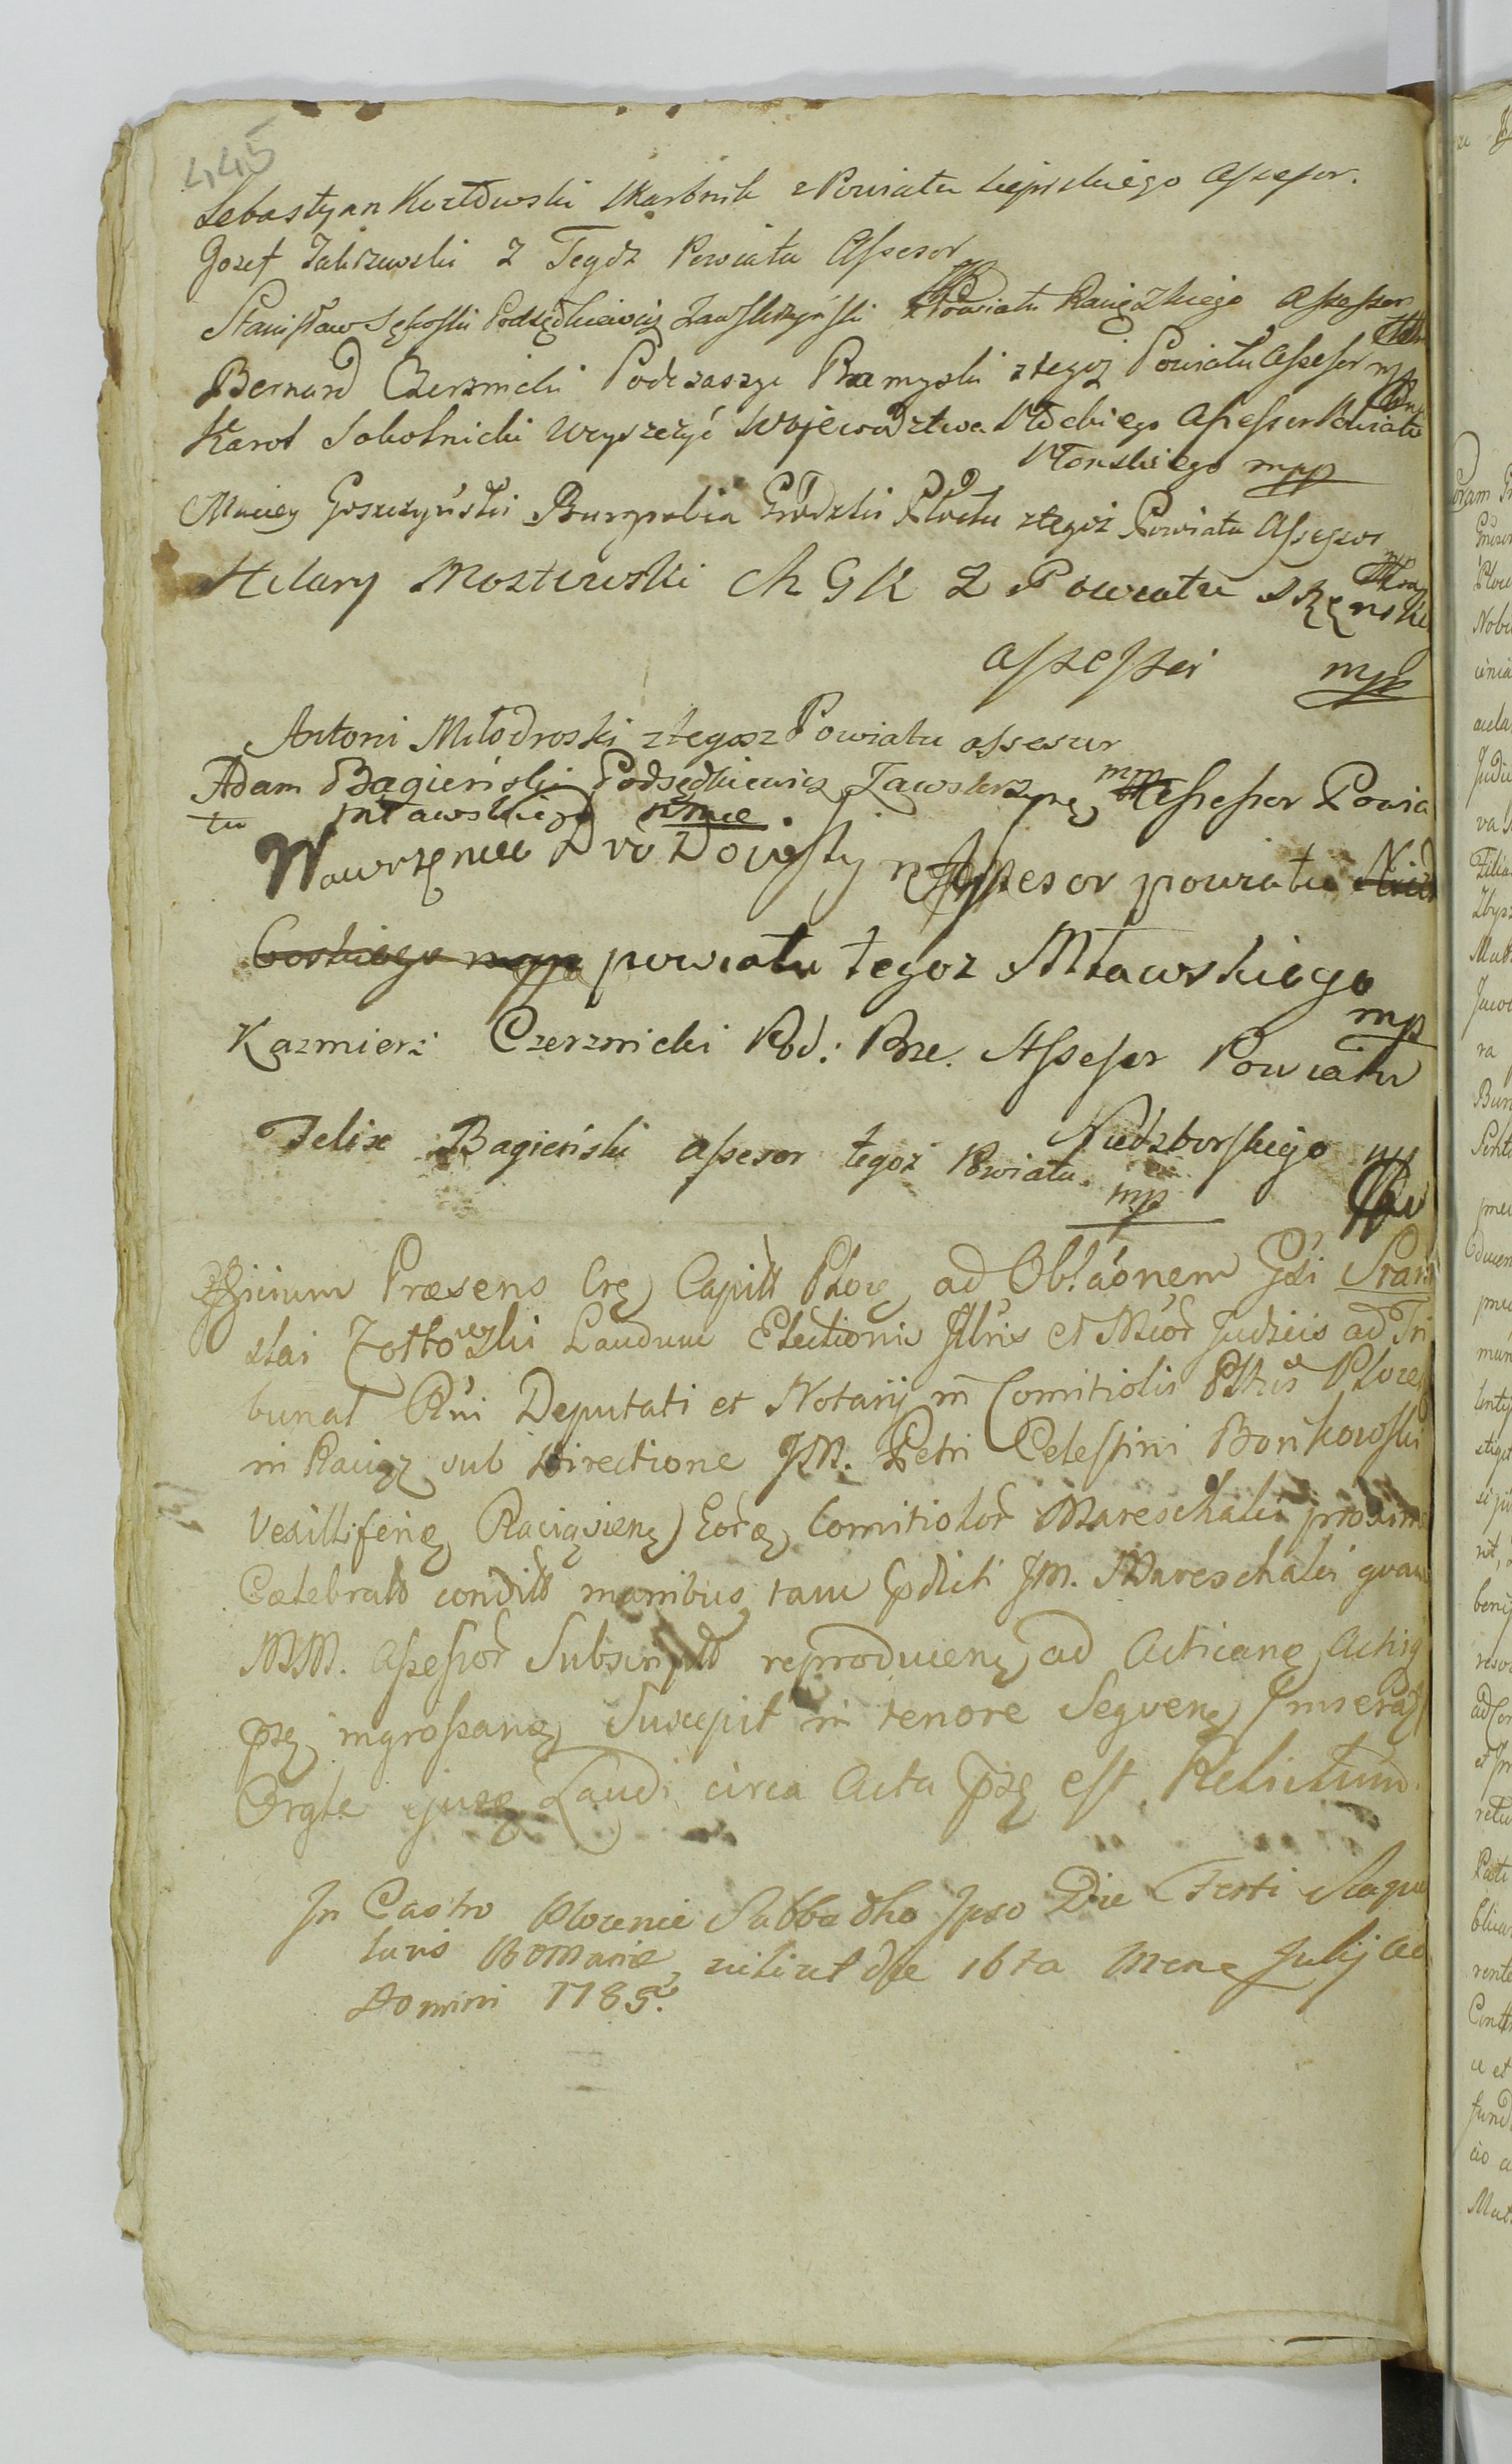 445
Sebastyan Kozłowski Skarbnik z Powiatu Sierpskiego Assesor.
Jozef Zakrzewski z Tegoż Powiatu Assesor
Stanisław Sękoski Podsędkiewicz Zawskrzyński z Powiatu Raciązkiego Assessor
Bernard Czerznicki Podczaszyc Przemyski z tegoż Powiatu Assesor mp
Karol Sokolnicki Woyszczyć Województwa Płockiego Assessor Powiatu
Płonskiego mpp
Maciey Goszczyński Burgrabia Grodzki Płocki z tegoż Powiatu Assessor
Hilary Mostowski Ch G K z Powiatu Szręnskie
assessor mpp
Antoni Miłodroski z tegosz Powiatu assesur
Adam Bagieński Podsędkiewicz Zawskrz mp Assessor Powia
tu Mławskiego
Wawrzeniec Drozdojesky Assesor powiatu
powiatu tegoz Mławskiego
mp
Kazmierz Czerznicki Pod: Prze. Assesor Powiatu
Niedzborskiego mp
Felix Bagieński assesor tegoż Powiatu.
mp
Officium Præsens Crę Capitt Płocę ad Oblaónem Gsi Stani
slai Żołtowski Laudum Electionis Illris et Mcor Judicis ad Tri
bunal Rni Deputati et Notarij in Comitiolis Pltus Płocen
in Raciąz sub Directione JM. Petri Celestini Bońkowski
Vexilliferię Raciązienę Eorę Comitiolor Mareschalci proxime
Cælebratt conditt manibus tam pdicti JM. Mareschalci quam
MM. Assessor Subscriptt reproducenę ad Acticanę Actisq
psę ingrossanę Suscepit in tenore Sequenę
Orgle ejusę Laudi circa Acta psę est Relictum.
In Castro Plocensi Sabbatho Ipso Die Festi Scapu
laris B M Mariæ, die 16ta Mens Julij
Domini 1785.